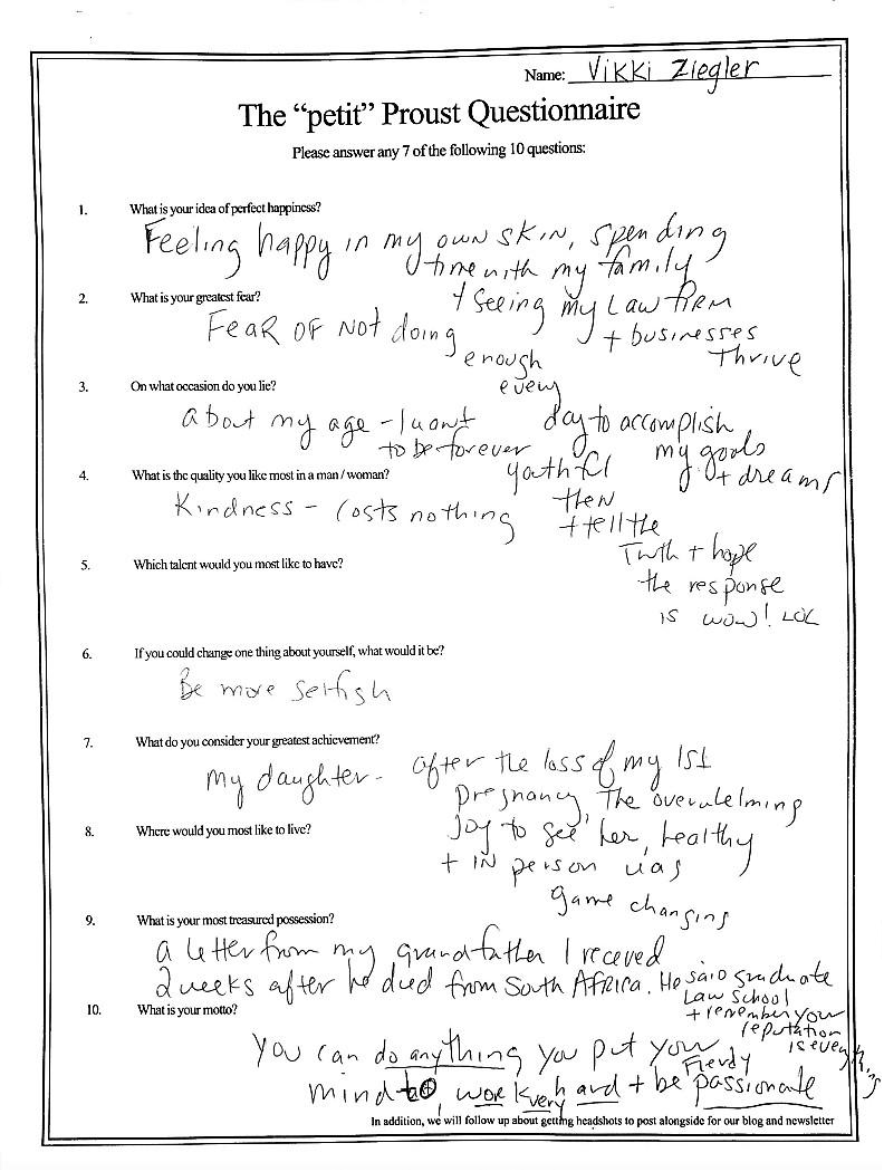 Name: Vikki Ziegler
The “petit” Proust Questionnaire
Please answer any 7 of the following 10 questions:
1. What is your idea of perfect happiness?
Feeling happy in my own skin, spending
time with my family
+ seeing my Law firm
+ businesses
Thrive
2. What is your greatest fear?
Fear of not doing
enough
every
day to accomplish
my goals
+ dreams
3. On what occasion do you lie?
about my age - I want
to be forever
youthful
then
+ tell the
Truth + hope
the response
is wow! LOL
4. What is the quality you like most in a man / woman?
Kindness - costs nothing
5. Which talent would you most like to have?
6. If you could change one thing about yourself, what would it be?
Be more selfish
7. What do you consider your greatest achievement?
My daughter - after the loss of my 1st
pregnancy, The overwhelming
Joy to see her, healthy
+ in person was
game changing
8. Where would you most like to live?
9. What is your most treasured possession?
a letter from my grandfather I receved
2 weeks after he died from South Africa. He said graduate
Law School
+ remember your
reputation
is everything
10. What is your motto?
You can do anything you put your
mind to, work very hard + be passionate
In addition, we will follow up about getting headshots to post alongside for our blog and newsletter